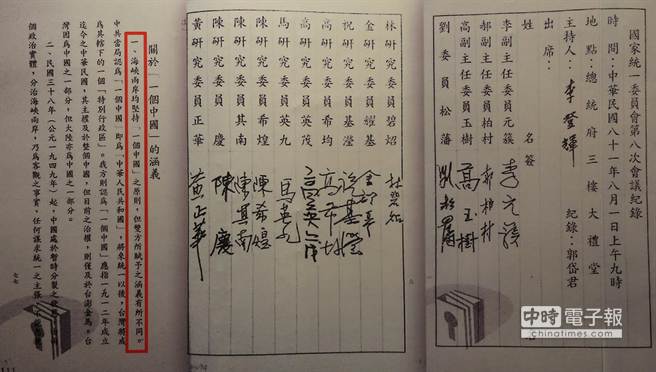 國家統一委員會第八次會議紀錄
時間：中華民國八十一年八月一日上午九時
地點：總統府三樓大禮堂
主持人：李登輝 紀錄：郭岱君
出席：
姓名簽
李副主任委員元簇 李元簇
郝副主任委員柏村 郝柏村
高副主任委員玉樹 高玉樹
劉委員松藩 劉松藩
林研究委員碧炤 林碧炤
金研究委員耀基 金耀基
祝研究委員基瀅 祝基瀅
高研究委員希均 高希均
高研究委員英茂 高英茂
馬研究委員英九 馬英九
陳研究委員希煌 陳希煌
陳研究委員其南 陳其南
陳研究委員慶 陳慶
黃研究委員正華 黃正華
關於「一個中國」的涵義
一、海峽兩岸均堅持「一個中國」之原則，但雙方所賦予之涵義有所不同。
中共當局認為「一個中國」即為「中華人民共和國」，將來統一以後，台灣將成
為其轄下的一個「特別行政區」。我方則認為「一個中國」應指一九一二年成立
迄今之中華民國，其主權及於整個中國，但目前之治權，則僅及於台澎金馬。台
灣固為中國之一部分，但大陸亦為中國之一部分。
二、民國三十八年（公元一九四九年）起，中國處於暫時分裂之
個政治實體，分治海峽兩岸，乃為客觀之事實，任何謀求統一之主張
七七
中時電子報
chinatimes.com